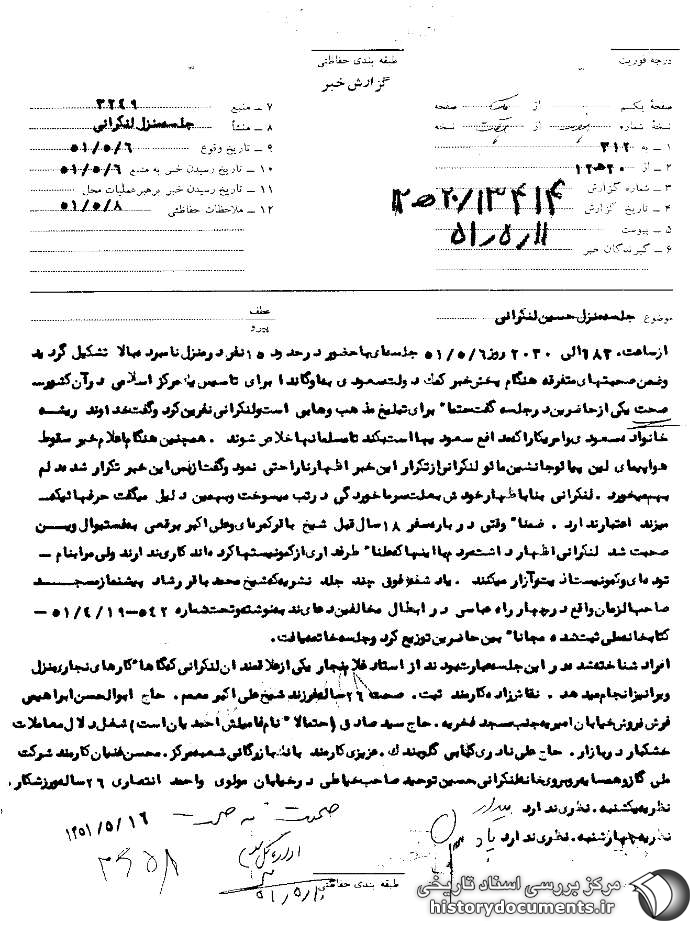 درجه فوریت
طبقه بندی حفاظتی
گزارش خبر
صفحهٔ یکم از صفحه
نسخهٔ شماره از نسخه
۱ – به ۳۱۲
۲ – از ۲۰ ه ۱۲
۳ – شماره گزارش ۱۲ ه ۲۰/۱۳۴۱۴
۴ – تاریخ گزارش ۵۱/۵/۱۱
۵ – پیوست
۶ – گیرندگان خبر
۷ – منبع ۳۲۴۹
۸ – منشأ جلسه منزل لنکرانی
۹ – تاریخ وقوع ۵۱/۵/۶
۱۰ – تاریخ رسیدن خبر به منبع ۵۱/۵/۶
۱۱ – تاریخ رسیدن خبر برهبر عملیات محل
۱۲ – ملاحظات حفاظتی ۵۱/۵/۸
موضوع جلسه منزل حسین لنکرانی
عطف
پیرو
از ساعت الی ۲۰۳۰ روز ۵۱/۵/۶ جلسه‌ای با حضور در حدود ۱۵ نفر در منزل نامبرده بالا تشکیل گردید
وضمن صحبتهای متفرقه هنگام پخش خبر کمک دولت سعودی به اوگاندا برای تاسیس یک مرکز اسلامی در آن کشور به
صحبت یکی از حاضرین در جلسه گفت حتما" برای تبلیغ مذهب وهابی است ولنکرانی نفرین کرد و گفت خداوند ریشه
خانواده سعودی و امریکا را که مدافع سعودیها است بکند تا مسلمانها خلاص شوند . همچنین هنگام اعلام خبر سقوط
هواپیمای لین پیائو جانشین مائو لنکرانی از تکرار این خبر اظهار ناراحتی نمود و گفت از بس این خبر تکرار شده دلم
بهم میخورد . لنکرانی بنا باظهار خودش بعلت سرماخوردگی در تب میسوخت و بهمین دلیل میگفت حرفهائیکه
میزند اعتبار ندارد . ضمنا" وقتی درباره سفر ۱۸ سال قبل شیخ باقر کمره‌ای و علی اکبر برقعی به فستیوال وین
صحبت شد لنکرانی اظهار داشت مردم با اینها که علنا" طرفداری از کمونیستها کرده‌اند کاری ندارند ولی مرا بنام –
توده‌ای و کمونیست اذیت و آزار میکنند . یاد شده فوق چند جلد نشریه که شیخ محمد باقر رشاد پیشنماز مسجد
صاحب الزمان واقع در چهار راه عباسی در ابطال مخالفین دعای ندبه نوشته و تحت شماره ۵۴۲ – ۵۱/۴/۱۹ –
کتابخانه ملی ثبت شده مجانا" بین حاضرین توزیع کرد و جلسه خاتمه یافت.
افراد شناخته شده در این جلسه عبارت بودند از استاد غلام نجار یکی از علاقمندان لنکرانی که گاها" کارهای نجاری منزل
ویرا نیز انجام میدهد . نقاش زاده کارمند ثبت. صحت ۲۶ ساله فرزند شیخ علی اکبر معمم . حاج ابوالحسن ابراهیمی
فرش فروش خیابان امیریه جنب مسجد فخریه . حاج سید صادق (احتمالا" نام فامیلش احمدیان است) شغل دلال معاملات
خشکبار در بازار . حاج علی نادری کتابی گلوبندک . عزیزی کارمند بانک بازرگانی شعبه مرکز . محسن غنیان کارمند شرکت
ملی گاز و همسایه روبروی خانه لنکرانی حسین توحید صاحب خیاطی در خیابان مولوی واحمد انتصاری ۲۶ ساله ورزشکار.
نظریه یکشنبه . نظری ندارد
نظریه چهارشنبه . نظری ندارد
۱۳۵۱/۵/۱۶
طبقه بندی حفاظتی
مرکز بررسی اسناد تاریخی
historydocuments.ir